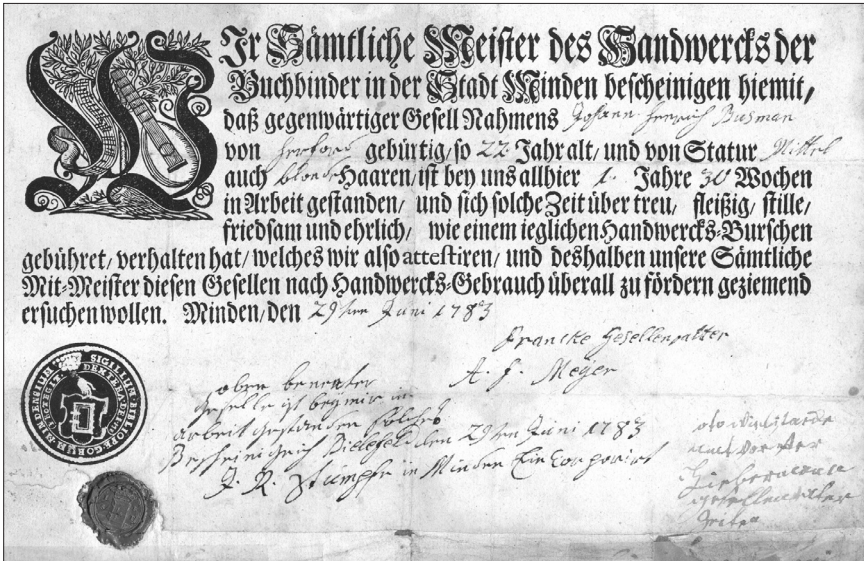 WJr Sämtliche Meister des Handwercks der
Buchbinder in der Stadt Minden bescheinigen hiemit,
daß gegenwärtiger Gesell Nahmens Johann Henrich Busman
von Herford gebürtig/ so 22 Jahr alt/ und von Statur Mittel
auch blonde Haaren/ ist bey uns allhier 1. Jahre 30 Wochen
in Arbeit gestanden/ und sich solche Zeit über treu/ fleißig/ stille/
friedsam und ehrlich/ wie einem ieglichen Handwercks-Burschen
gebühret/ verhalten hat/ welches wir also attestiren/ und deshalben unsere Sämtliche
Mit-Meister diesen Gesellen nach Handwercks-Gebrauch überall zu fördern geziemend
ersuchen wollen. Minden/ den 29ten Juni 1783
Francke Gesellenvatter
A. F. Meyer
oben benenter
Geselle ist bey mir in
arbeit gestanden solches
Bescheinige ich Bielefeld den 29ten Juni 1783
J. R. Stümpfe in Minden Eincorporirt
SIGILLUM BIBLIOPEGORUM MINDENSIUM